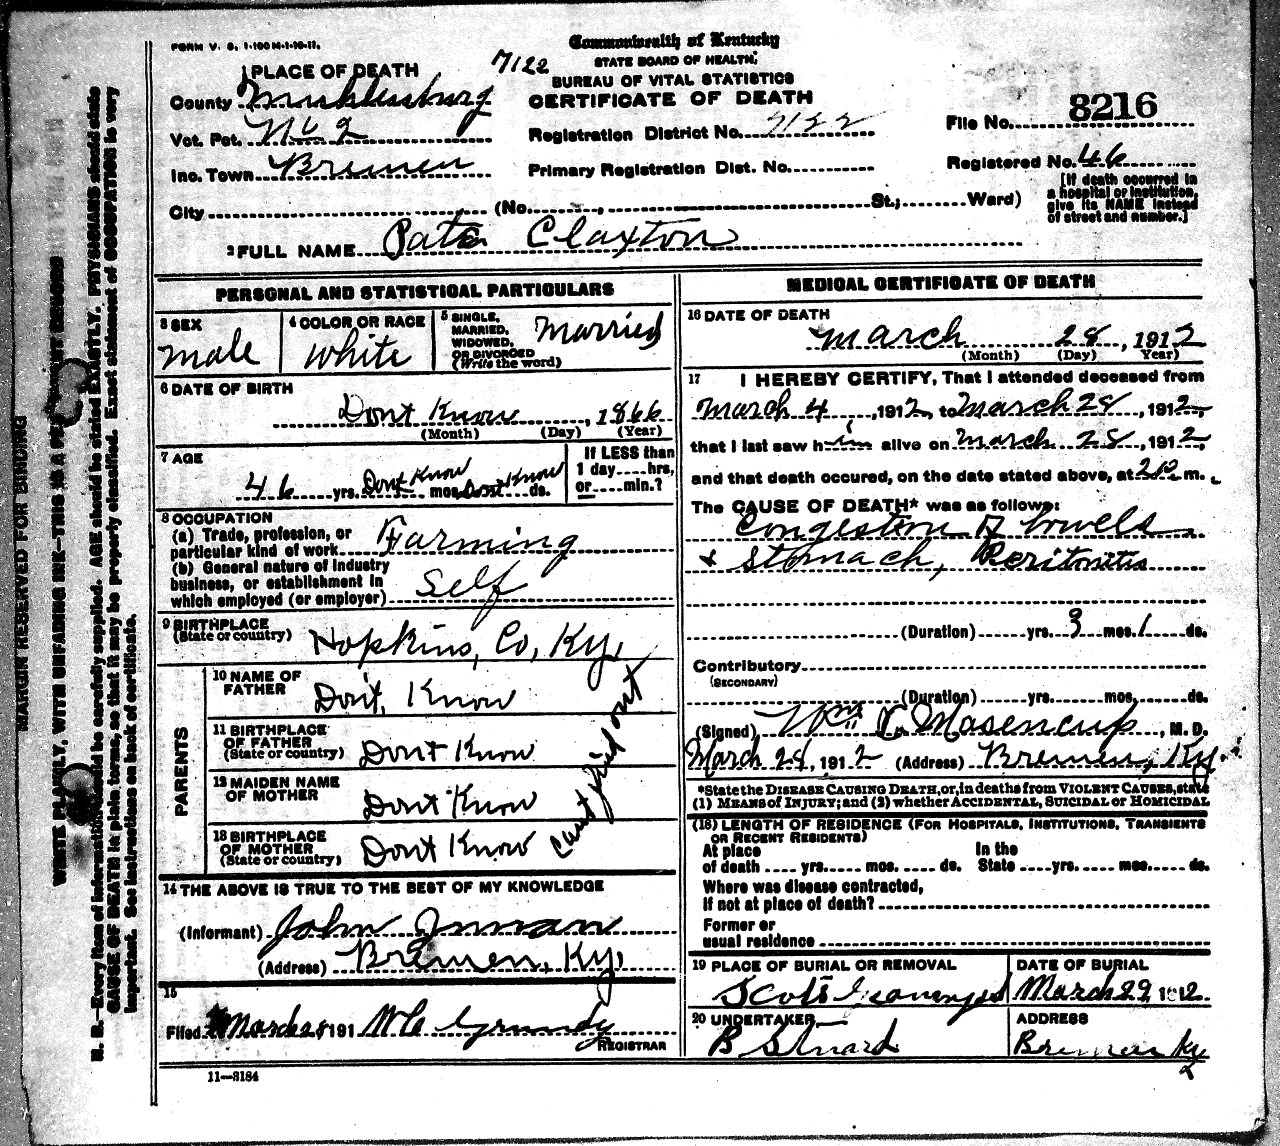 FORM V. S. 1-100 M-1-10-11.
Commonwealth of Kentucky
STATE BOARD OF HEALTH,
BUREAU OF VITAL STATISTICS
CERTIFICATE OF DEATH
7122
1 PLACE OF DEATH
County Muhlenburg
Vot. Pct. No 2
Inc. Town Bremen
Registration District No. 7122
Primary Registration Dist. No.
File No. 8216
Registered No. 46
[If death occurred in a hospital or institution, give its NAME instead of street and number.]
City (No. , St.; Ward)
2 FULL NAME Pate Claxton
PERSONAL AND STATISTICAL PARTICULARS
3 SEX
male
4 COLOR OR RACE
White
5 SINGLE, MARRIED, WIDOWED, OR DIVORCED (Write the word)
Married
6 DATE OF BIRTH
Dont Know , 1866
(Month) (Day) (Year)
7 AGE
46 yrs. Dont Know mos. Dont Know ds.
If LESS than 1 day hrs, or min.?
8 OCCUPATION
(a) Trade, profession, or particular kind of work Farming
(b) General nature of industry business, or establishment in which employed (or employer) Self
9 BIRTHPLACE
(State or country) Hopkins, Co, Ky,
PARENTS
10 NAME OF FATHER Don't, Know
11 BIRTHPLACE OF FATHER (State or country) Dont Know
12 MAIDEN NAME OF MOTHER Dont Know
13 BIRTHPLACE OF MOTHER (State or country) Dont Know
cant find out
14 THE ABOVE IS TRUE TO THE BEST OF MY KNOWLEDGE
(Informant) John Inman
(Address) Bremen, Ky,
15
Filed March 28 191
REGISTRAR
11—3184
MEDICAL CERTIFICATE OF DEATH
16 DATE OF DEATH
March 28 , 1912
(Month) (Day) Year)
17 I HEREBY CERTIFY, That I attended deceased from
March 4 , 1912, to March 28 , 1912,
that I last saw him alive on March 28 , 1912
and that death occured, on the date stated above, at m.
The CAUSE OF DEATH* was as follows:
Congestion of bowels
+ Stomach, Peritonitis
(Duration) yrs. 3 mos. 1 ds.
Contributory
(SECONDARY)
(Duration) yrs. mos. ds.
(Signed) Wm Masencup , M. D.
March 28, 1912 (Address) Bremen, Ky.
*State the DISEASE CAUSING DEATH, or, in deaths from VIOLENT CAUSES, state
(1) MEANS of INJURY; and (2) whether ACCIDENTAL, SUICIDAL or HOMICIDAL
(18) LENGTH OF RESIDENCE (FOR HOSPITALS, INSTITUTIONS, TRANSIENTS
OR RECENT RESIDENTS)
At place of death yrs. mos. ds. In the State yrs. mos. ds.
Where was disease contracted,
If not at place of death?
Former or
usual residence
19 PLACE OF BURIAL OR REMOVAL
Scots Graveyard
DATE OF BURIAL
March 29, 1912
20 UNDERTAKER
B
ADDRESS
Bremen Ky
MARGIN RESERVED FOR BINDING
WRITE PLAINLY, WITH UNFADING INK—THIS IS A PERMANENT RECORD
N. B.—Every item of information should be carefully supplied. AGE should be stated EXACTLY. PHYSICIANS should state
CAUSE OF DEATH in plain terms, so that it may be properly classified. Exact statement of OCCUPATION is very
important. See instructions on back of certificate.